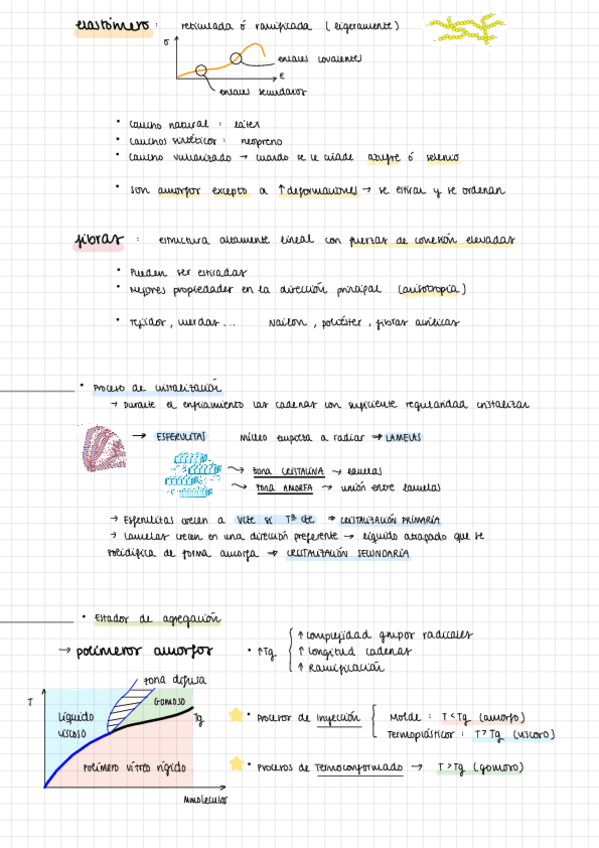 elastómero : reticulada ó ramificada ( ligeramente )
σ
enlaces covalentes
ε
enlaces secundarios
• Caucho natural : látex
• Cauchos sintéticos : neopreno
• Caucho vulcanizado → cuando se le añade azufre ó selenio
• Son amorfos excepto a ↑ deformaciones → se estiran y se ordenan
fibras : estructura altamente lineal con fuerzas de conexión elevadas
• Pueden ser estiradas
• Mejores propiedades en la dirección principal (anisotropía)
• Tejidos, cuerdas ... Nailon, poliéster, fibras acrílicas
• Proceso de cristalización
→ Durante el enfriamiento las cadenas con suficiente regularidad cristalizan
→ ESFERULITAS Núcleo empieza a radiar → LAMELAS
zona CRISTALINA → lamelas
zona AMORFA → unión entre lamelas
→ Esferulitas crecen a vcte si Tª cte → CRISTALIZACIÓN PRIMARIA
→ Lamelas crecen en una dirección preferente → líquido atrapado que se
solidifica de forma amorfa → CRISTALIZACIÓN SECUNDARIA
• Estados de agregación
→ polímeros amorfos
• ↑Tg
↑ complejidad grupos radicales
↑ longitud cadenas
↑ Ramificación
zona difusa
T
GOMOSO
Líquido
viscoso
Tg
Polímero vítreo rígido
Mmolecular
• Procesos de Inyección
Molde : T < Tg (amorfo)
Termoplástico : T > Tg (viscoso)
• Procesos de Termoconformado → T > Tg (gomoso)